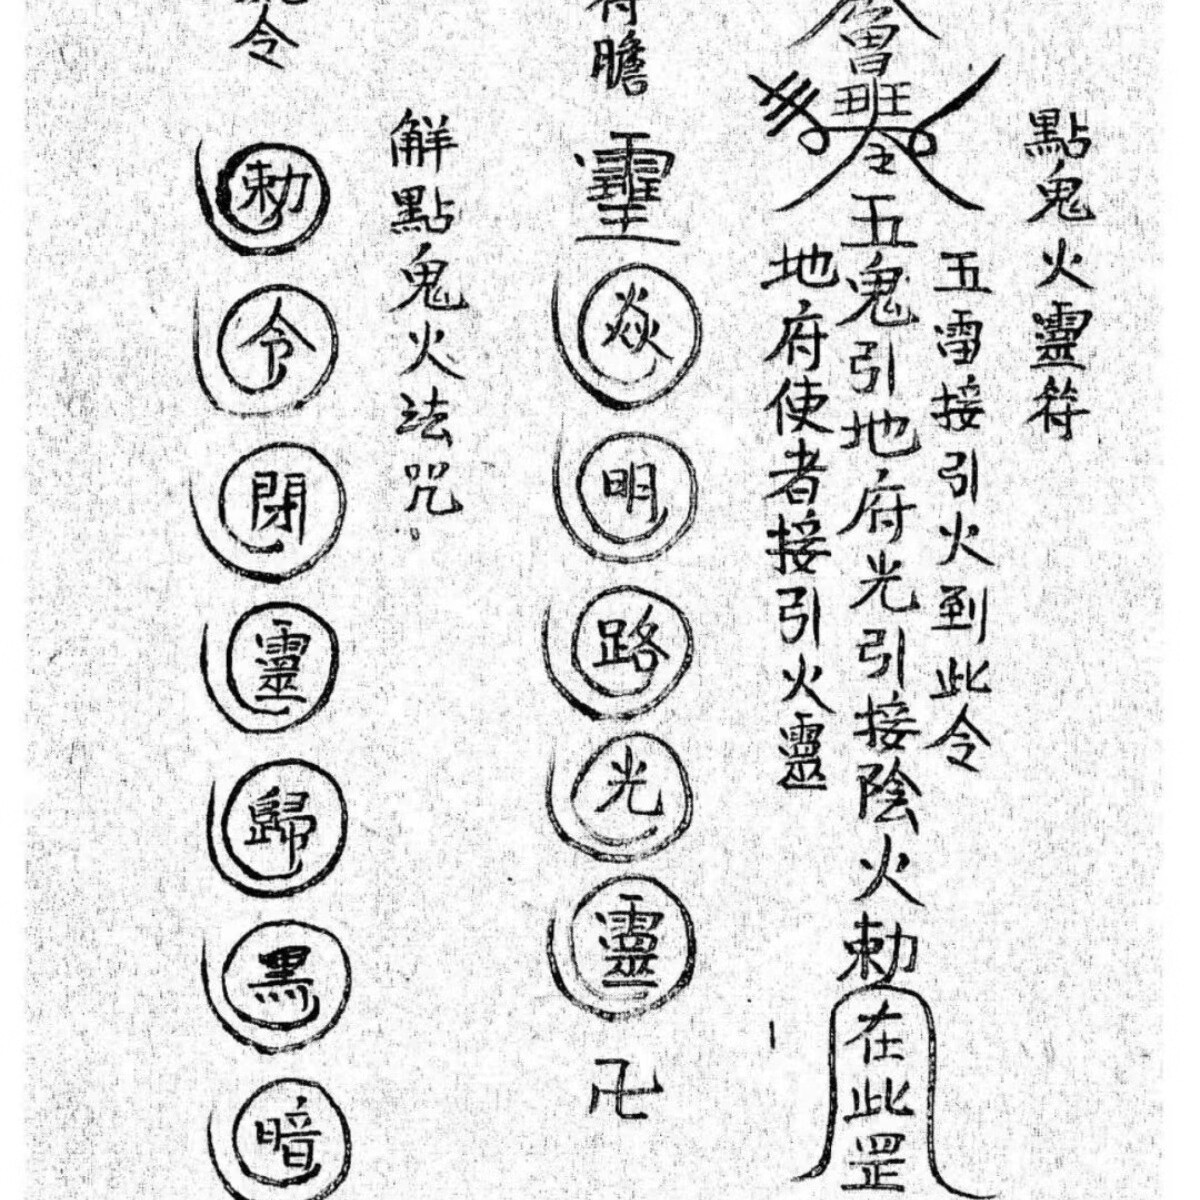 點鬼火靈符
五雷接引火到此令
魯班令五鬼引地府光引接陰火勅在此罡
地府使者接引火靈
符膽
焱明路光靈卍
解點鬼火法咒
令
勅令閉靈歸黑暗